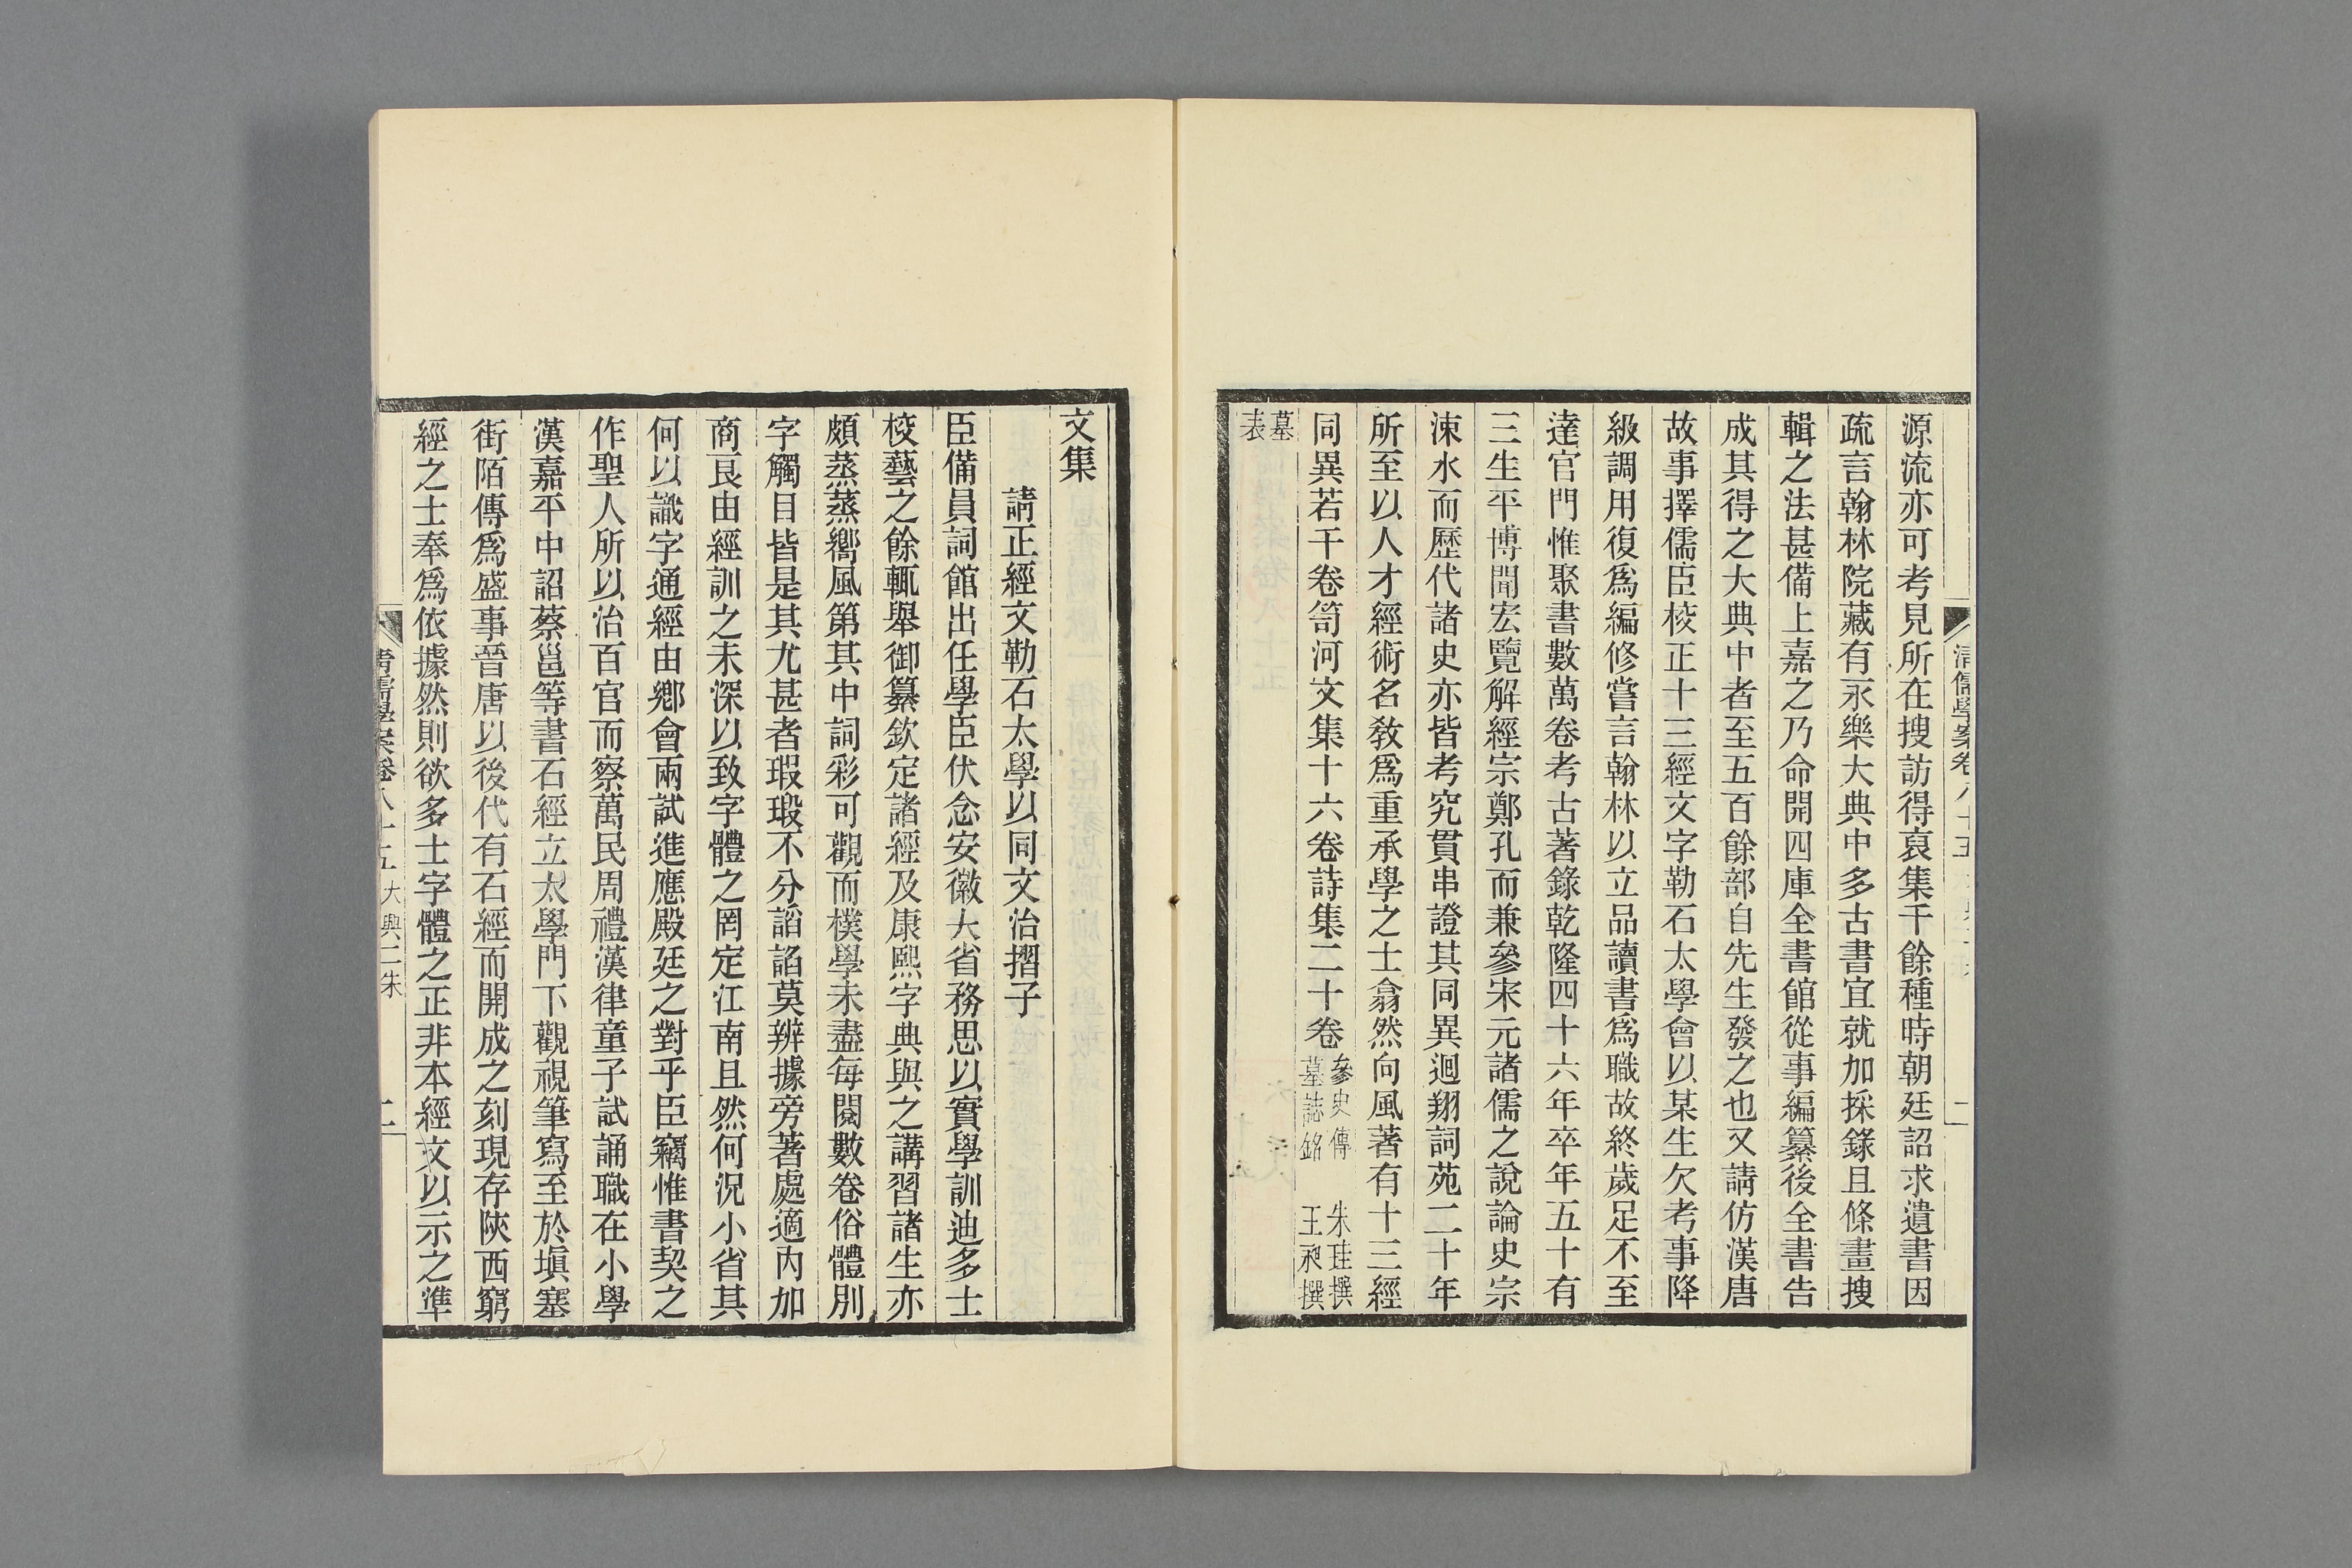 清儒學案卷八十五
源流亦可考見所在搜訪得裒集千餘種時朝廷詔求遺書因
疏言翰林院藏有永樂大典中多古書宜就加採錄且條畫搜
輯之法甚備上嘉之乃命開四庫全書館從事編纂後全書告
成其得之大典中者至五百餘部自先生發之也又請仿漢唐
故事擇儒臣校正十三經文字勒石太學會以某生欠考事降
級調用復爲編修嘗言翰林以立品讀書爲職故終歲足不至
達官門惟聚書數萬卷考古著錄乾隆四十六年卒年五十有
三生平博聞宏覽解經宗鄭孔而兼參宋元諸儒之說論史宗
涑水而歷代諸史亦皆考究貫串證其同異迴翔詞苑二十年
所至以人才經術名敎爲重承學之士翕然向風著有十三經
同異若干卷笥河文集十六卷詩集二十卷
參史傳 朱珪撰
墓誌銘 王昶撰
墓
表
文集
請正經文勒石太學以同文治摺子
臣備員詞館出任學臣伏念安徽大省務思以實學訓迪多士
校藝之餘輒舉御纂欽定諸經及康熙字典與之講習諸生亦
頗蒸蒸嚮風第其中詞彩可觀而樸學未盡每閱數卷俗體別
字觸目皆是其尤甚者瑕瑖不分謟諂莫辨據旁著處適內加
商艮由經訓之未深以致字體之罔定江南且然何況小省其
何以識字通經由鄉會兩試進應殿廷之對乎臣竊惟書契之
作聖人所以治百官而察萬民周禮漢律童子試誦職在小學
漢嘉平中詔蔡邕等書石經立太學門下觀視筆寫至於塡塞
街陌傳爲盛事晉唐以後代有石經而開成之刻現存陝西窮
經之士奉爲依據然則欲多士字體之正非本經文以示之準
清儒學案卷八十五 大興二朱 二